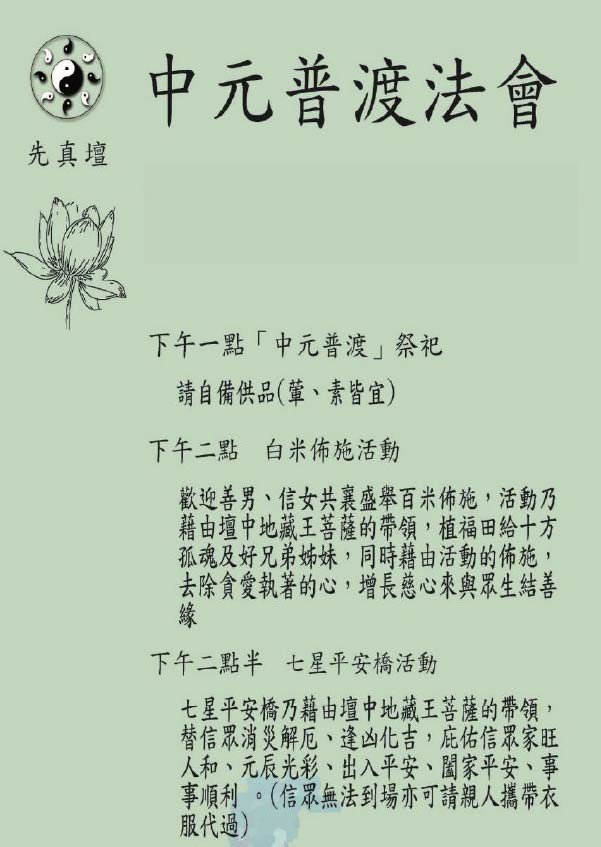 中元普渡法會
先真壇
下午一點「中元普渡」祭祀
請自備供品(葷、素皆宜)
下午二點 白米佈施活動
歡迎善男、信女共襄盛舉百米佈施，活動乃
藉由壇中地藏王菩薩的帶領，植福田給十方
孤魂及好兄弟姊妹，同時藉由活動的佈施，
去除貪愛執著的心，增長慈心來與眾生結善
緣
下午二點半 七星平安橋活動
七星平安橋乃藉由壇中地藏王菩薩的帶領，
替信眾消災解厄、逢凶化吉，庇佑信眾家旺
人和、元辰光彩、出入平安、闔家平安、事
事順利 。(信眾無法到場亦可請親人攜帶衣
服代過)